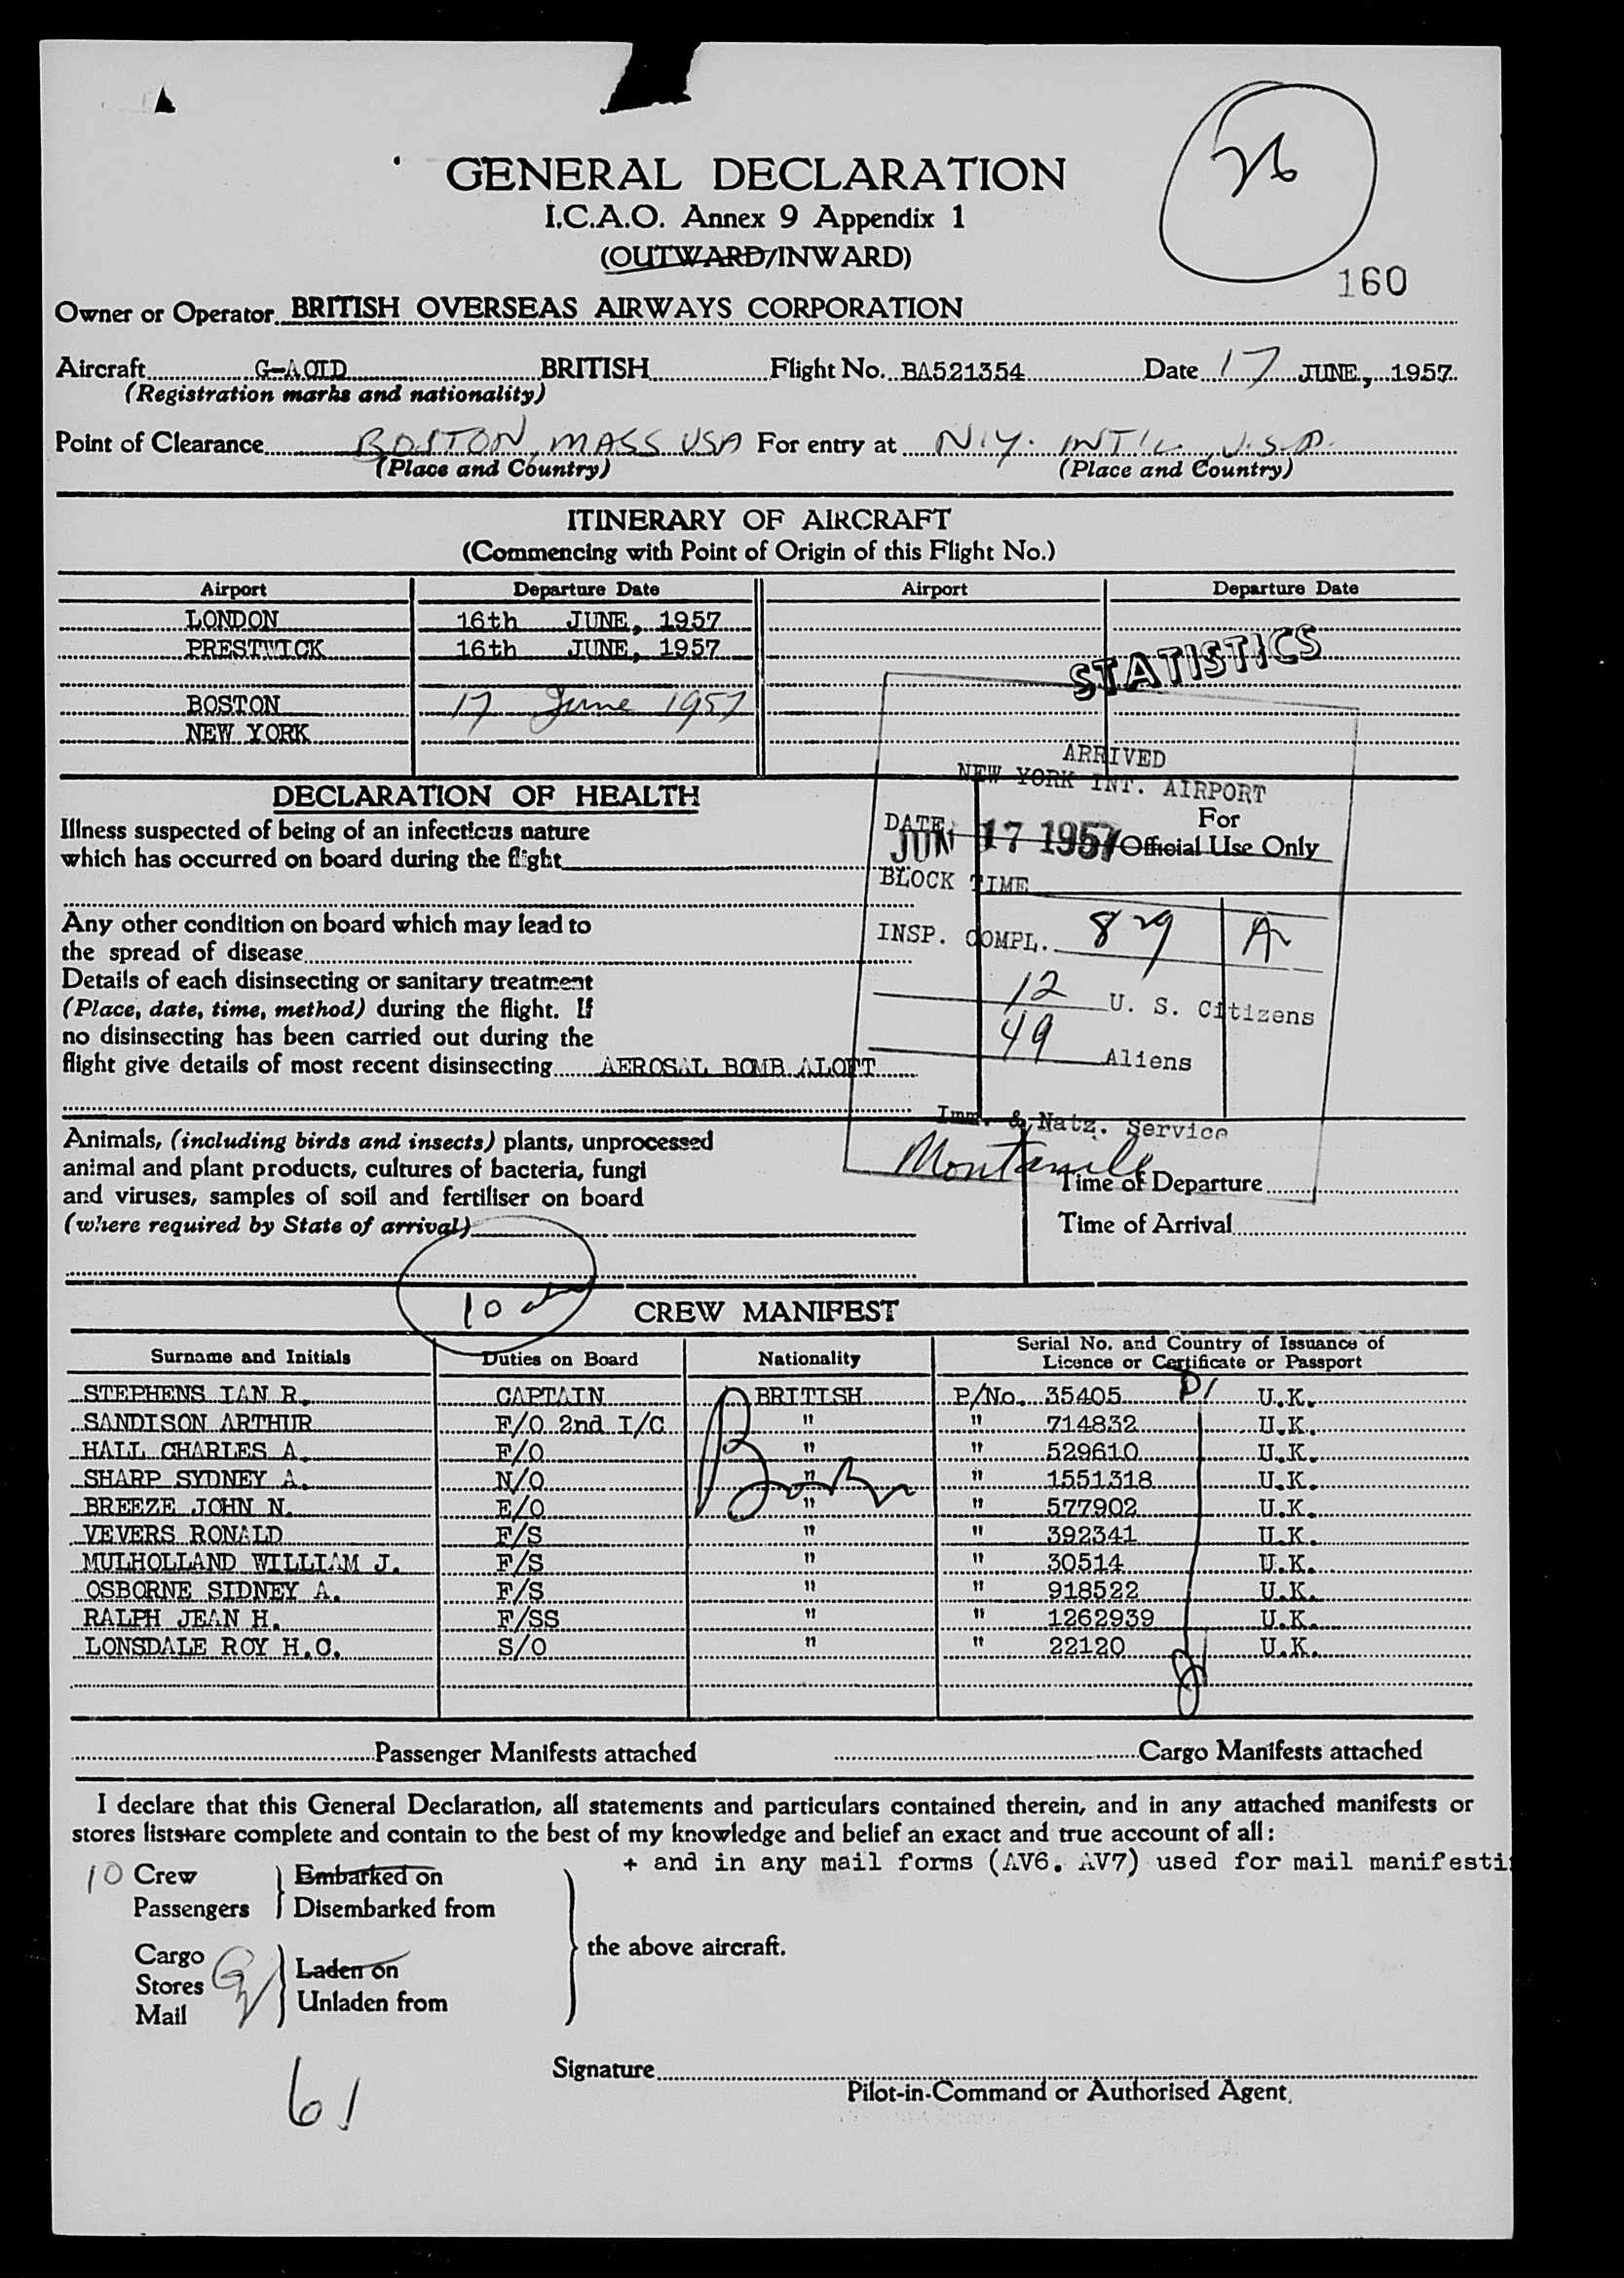 26
GENERAL DECLARATION
I.C.A.O. Annex 9 Appendix 1
(OUTWARD/INWARD)
160
Owner or Operator BRITISH OVERSEAS AIRWAYS CORPORATION
Aircraft BRITISH Flight No. BA521354 Date 17 JUNE, 1957
(Registration marks and nationality)
Point of Clearance BOSTON, MASS USA For entry at N.Y. INT'L, U.S.A.
(Place and Country) (Place and Country)
ITINERARY OF AIRCRAFT
(Commencing with Point of Origin of this Flight No.)
Airport Departure Date Airport Departure Date
LONDON 16th JUNE, 1957
PRESTWICK 16th JUNE, 1957
STATISTICS
BOSTON 17 June 1957
NEW YORK
ARRIVED
NEW YORK INT. AIRPORT
DECLARATION OF HEALTH
For
Official Use Only
DATE JUN 17 1957
Illness suspected of being of an infectious nature
which has occurred on board during the flight
BLOCK TIME
Any other condition on board which may lead to
the spread of disease
INSP. COMPL. 8 29 A
Details of each disinsecting or sanitary treatment
(Place, date, time, method) during the flight. If
no disinsecting has been carried out during the
flight give details of most recent disinsecting AEROSAL BOMB ALOFT
12 U. S. Citizens
49 Aliens
Imm. & Natz. Service
Animals, (including birds and insects) plants, unprocessed
animal and plant products, cultures of bacteria, fungi
and viruses, samples of soil and fertiliser on board
(where required by State of arrival)
Time of Departure
Time of Arrival
10
CREW MANIFEST
Surname and Initials Duties on Board Nationality Serial No. and Country of Issuance of
Licence or Certificate or Passport
STEPHENS IAN R. CAPTAIN BRITISH P/No. 35405 U.K.
SANDISON ARTHUR F/O 2nd I/C " " 714832 U.K.
HALL CHARLES A. F/O " " 529610 U.K.
SHARP SYDNEY A. N/O " " 1551318 U.K.
BREEZE JOHN N. E/O " " 577902 U.K.
VEVERS RONALD F/S " " 392341 U.K.
MULHOLLAND WILLIAM J. F/S " " 30514 U.K.
OSBORNE SIDNEY A. F/S " " 918522 U.K.
RALPH JEAN H. F/SS " " 1262939 U.K.
LONSDALE ROY H.C. S/O " " 22120 U.K.
Passenger Manifests attached Cargo Manifests attached
I declare that this General Declaration, all statements and particulars contained therein, and in any attached manifests or
stores lists+are complete and contain to the best of my knowledge and belief an exact and true account of all:
+ and in any mail forms (AV6. AV7) used for mail manifesti
10 Crew Embarked on
Passengers Disembarked from
the above aircraft.
Cargo
Stores Laden on
Mail Unladen from
61
Signature
Pilot-in-Command or Authorised Agent.